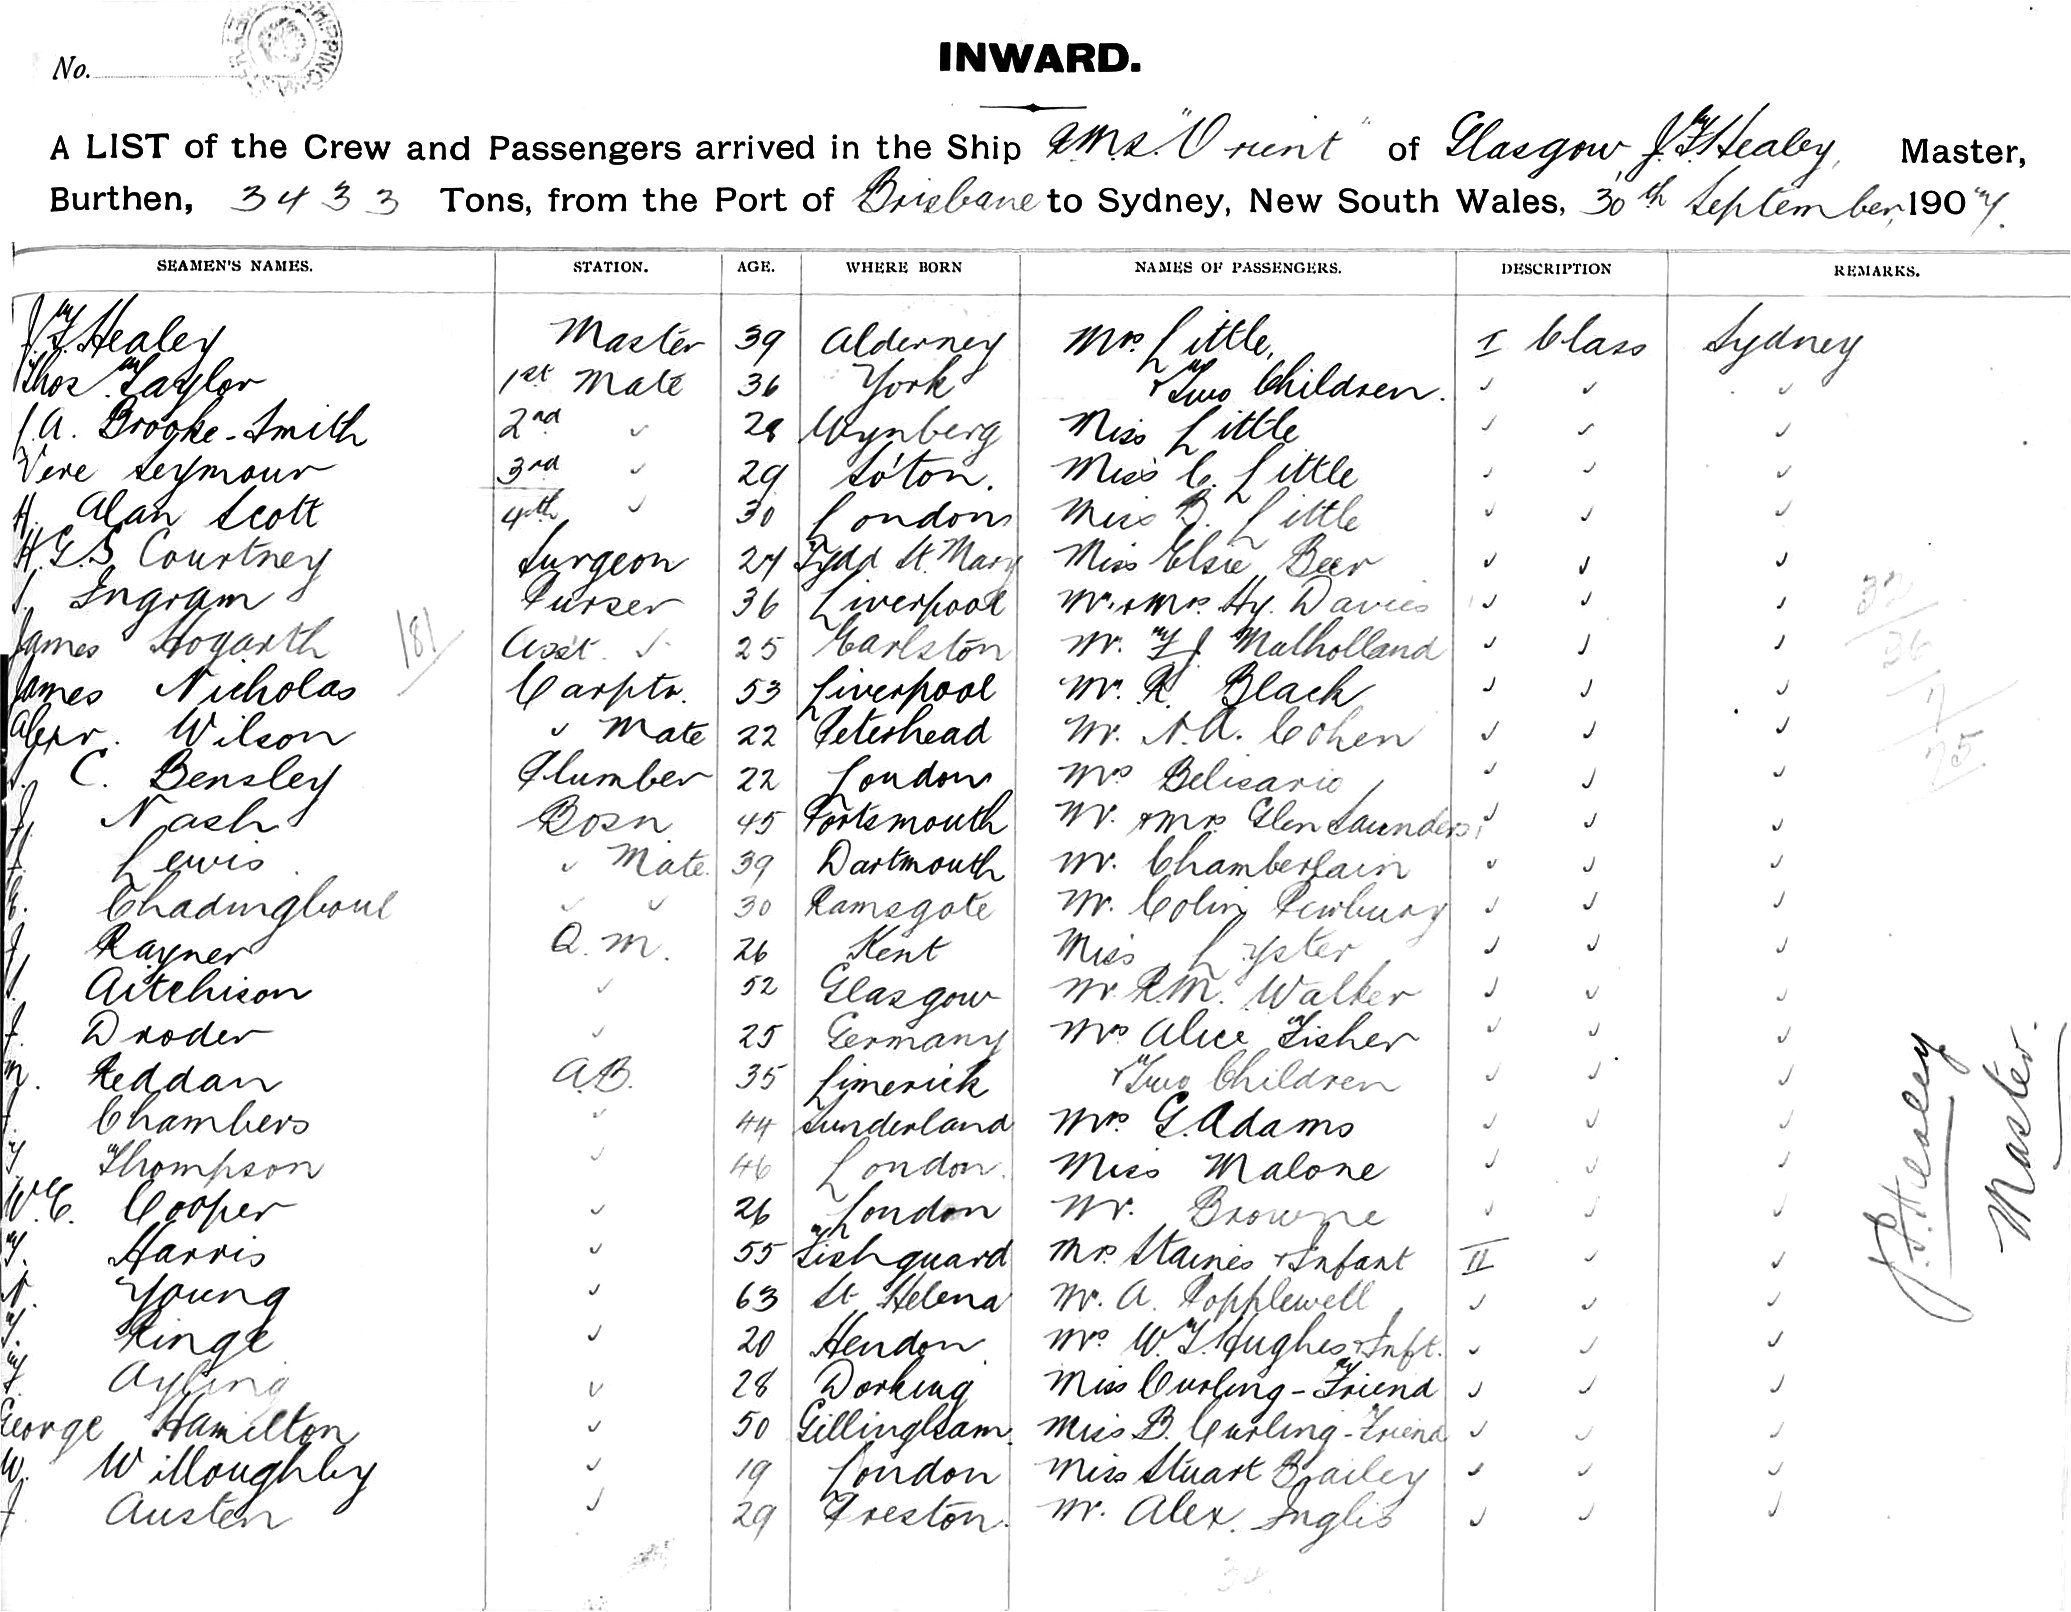 No.
INWARD.
A LIST of the Crew and Passengers arrived in the Ship R.M.S. "Orient" of Glasgow, J. F. Healey, Master,
Burthen, 3433 Tons, from the Port of Brisbane to Sydney, New South Wales, 30th September, 1904.
SEAMEN'S NAMES. STATION. AGE. WHERE BORN NAMES OF PASSENGERS. DESCRIPTION REMARKS.
J. F. Healey Master 39 Alderney Mrs. Little, I Class Sydney
Thos Taylor 1st Mate 36 York & Two Children. " " "
J. A. Brooke-Smith 2nd " 28 Wynberg Miss Little " " "
Vere Seymour 3rd " 29 So'ton. Miss C. Little " " "
H. Alan Scott 4th " 30 London Miss B. Little " " "
H. G. S. Courtney Surgeon 24 Tydd St. Mary Miss Elsie Beer " " "
Ingram Purser 36 Liverpool Mr. & Mrs. Hy. Davies " " "
James Hogarth 181 Asst. " 25 Earlston Mr. F J Mulholland " " "
James Nicholas Carptr. 53 Liverpool Mr. R. Black " " "
Alexr. Wilson " Mate 22 Peterhead Mr. N. A. Cohen " " "
C. Bensley Plumber 22 London Mrs Belisario " " "
J. Nash Bosn 45 Portsmouth Mr. & Mrs. Glen Saunders, " " "
Lewis " Mate. 39 Dartmouth Mr. Chamberlain " " "
Chadingboul " " 30 Ramsgate Mr. Colin Newbury " " "
J. Rayner Q. M. 26 Kent Miss Lyster " " "
Aitchison " 52 Glasgow Mr. R. M. Walker " " "
J. Droder " 25 Germany Mrs Alice Fisher " " "
M. Reddan A.B. 35 Limerick & Two Children " " "
Chambers " 44 Sunderland Mrs. G. Adams " " "
T. Thompson " 46 London. Miss Malone " " "
W. C. Cooper " 26 London Mr. Browne " " "
T. Harris " 55 Fishguard Mrs. Staines & Infant II " "
N. Young " 63 St Helena Mr. A. Popplewell " " "
T. Ringe " 20 Hendon Mrs W. T. Hughes & Inft. " " "
F. Ayling " 28 Dorking Miss Curling - Friend " " "
George Hamilton " 50 Gillingham. Miss B. Curling - Friend " " "
W. Willoughby " 19 London Miss Stuart Bailey " " "
J. Austen " 29 Preston. Mr. Alex. Inglis " " "
32
36
7
75
J. F. Healey
Master.